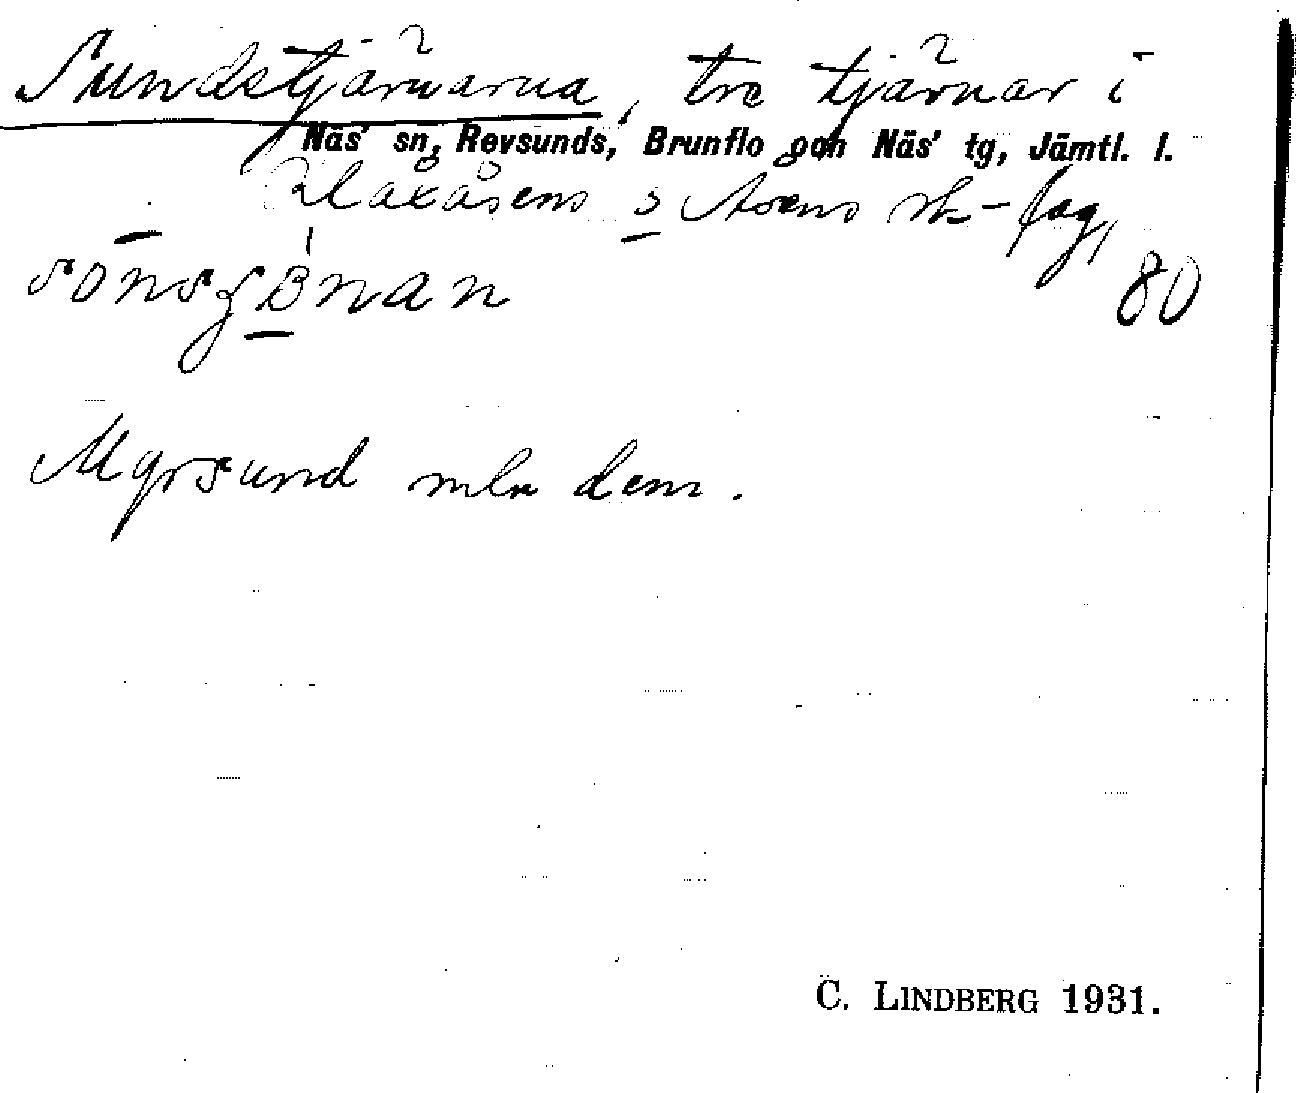 Sundstjärnarna, tre tjärnar i
Näs' sn, Revsunds, Brunflo och Näs' tg, Jämtl. l.
Åsens sk-lag,
80
Myrsund mln dem.
C. LINDBERG 1931.